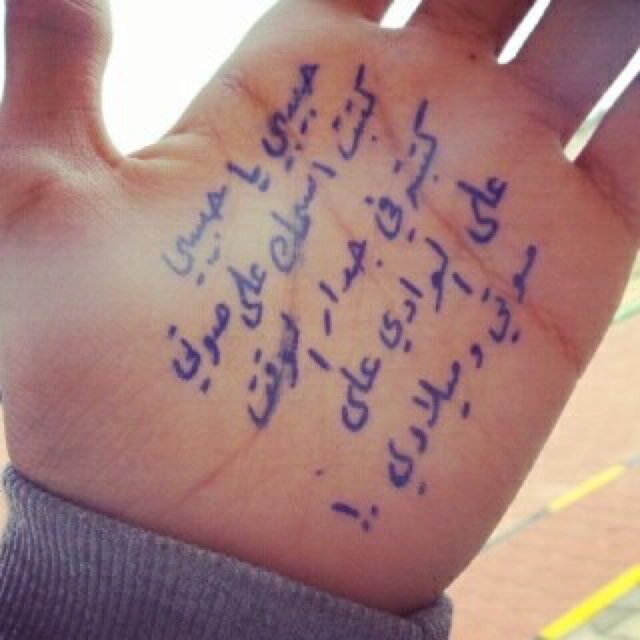 حبيبي يا حبيبي
كتبت اسمك على صوتي
كتبته في جدار الوقت
على الوادي على
موتي و ميلادي
!..